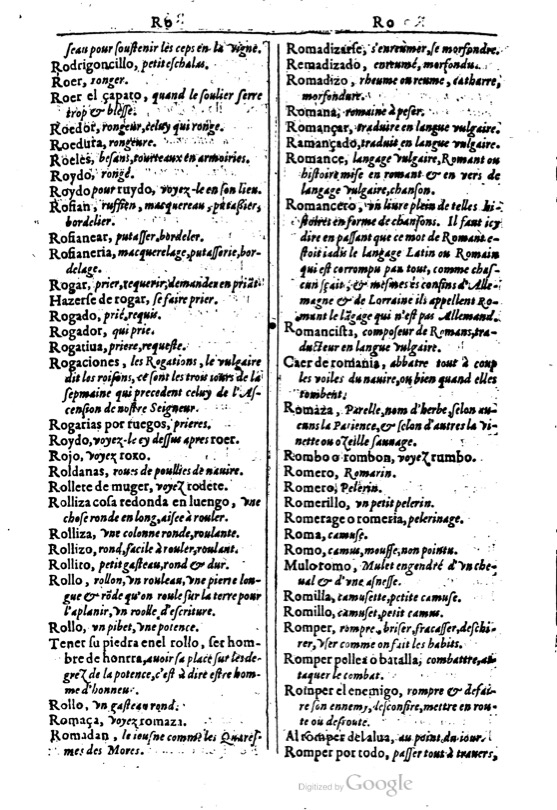 RO
seau pour soustenir les ceps en la vigne.
Rodrigoncillo, petit eschalas.
Roer, ronger.
Roer el çapato, quand le soulier serre
trop & blesse.
Roedor, rongeur, celuy qui ronge.
Roedura, rongeure.
Roeles, besant, tourteaux en armoiries.
Roydo, rongé.
Roydo pour ruydo, voyez-le en son lieu.
Rofian, ruffien, macquereau, putassier,
bordelier.
Rofianear, putasser, bordeler.
Rofianeria, macquerelage, putasserie, bor-
delage.
Rogar, prier, requerir, demander en priāt.
Hazerse de rogar, se faire prier.
Rogado, prié, requis.
Rogador, qui prie.
Rogatiua, priere, requeste.
Rogaciones, les Rogations, le vulgaire
dit les roisons, ce sont les trois iours de la
sepmaine qui precedent celuy de l'As-
cension de nostre Seigneur.
Rogarias por ruegos, prieres.
Roydo, voyez-le cy dessus apres roer.
Rojo, voyez roxo.
Roldanas, roues de poullies de nauire.
Rollete de muger, voyez rodete.
Rolliza cosa redonda en luengo, vne
chose ronde en long, aisée à rouler.
Rolliza, vne colonne ronde, roulante.
Rollizo, rond, facile à rouler, roulant.
Rollito, petit gasteau, rond & dur.
Rollo, rollon, vn rouleau, vne pierre lon-
gue & rōde qu'on roule sur la terre pour
l'aplanir, vn roolle d'escriture.
Rollo, vn pibet, vne potence.
Tener su piedra en el rollo, ser hom-
bre de honrra, auoir sa place sur les de-
grez de la potence, c'est à dire estre hom-
me d'honneur.
Rollo, vn gasteau rond.
Romaça, voyez romaza.
Romadan, le iousne comme les Quares-
mes des Mores.
RO
Romadizarse, s'enrumer, se morfondre.
Remadizado, enrumé, morfondu.
Romadizo, rheume ou reume, catharre,
morfondure.
Romana, romaine à peser.
Romançar, traduire en langue vulgaire.
Ramançado, traduit en langue vulgaire.
Romance, langage vulgaire, Romant ou
histoire mise en romant & en vers de
langage vulgaire, chanson.
Romancero, vn liure plein de telles hi-
stoires en forme de chansons. Il faut icy
dire en passant que ce mot de Romant e-
stoit iadis le langage Latin ou Romain
qui est corrompu par tout, comme chas-
cun sçait, & mesmes és confins d'Alle-
magne & de Lorraine ils appellent Ro-
mant le lāgage qui n'est pas Allemand.
Romancista, composeur de Romans, tra-
ducteur en langue vulgaire.
Caer de romania, abbatre tout à coup
les voiles du nauire, ou bien quand elles
tombent.
Romaza, Parelle, nom d'herbe, selon au-
cuns la Parience, & selon d'autres la vi-
nette ou ozeille sauuage.
Rombo o rombon, voyez rumbo.
Romero, Romarin.
Romero, Pelerin.
Romerillo, vn petit pelerin.
Romerage o romeria, pelerinage.
Roma, camuse.
Romo, camus, mousse, non pointu.
Mulo romo, Mulet engendré d'vn che-
ual & d'vne asnesse.
Romilla, camusette, petite camuse.
Romillo, camuset, petit camus.
Romper, rompre, briser, fracasser, deschi-
rer, vser comme on fait les habits.
Romper pellea o batalla, combattre, at-
taquer le combat.
Romper el enemigo, rompre & defai-
re son ennemy, desconfire, mettre en rou-
te ou desroute.
Al romper del alua, au point du iour.
Romper por todo, passer tout à trauers,
Digitized by Google